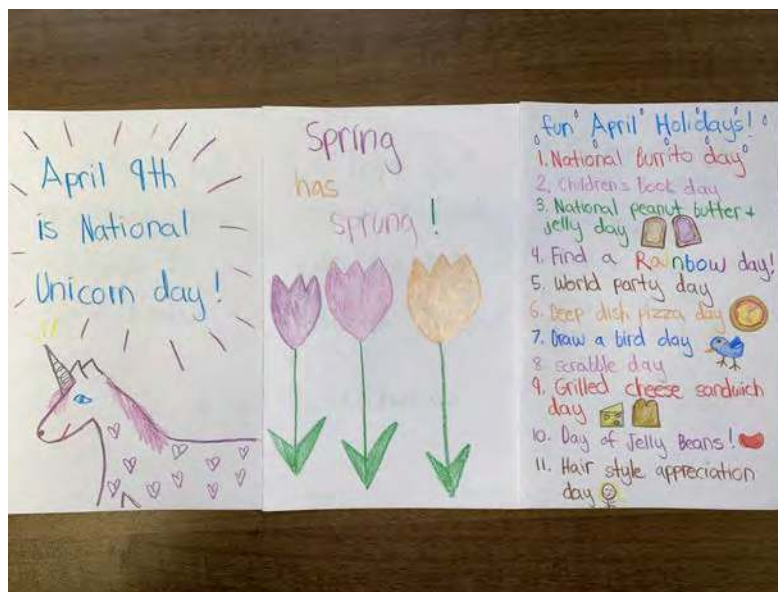 April 9th
is National
Unicorn day!
Spring
has
sprung!
fun April Holidays!
1. National burrito day
2. Children's book day
3. National peanut butter +
jelly day
4. Find a Rainbow day!
5. World party day
6. Deep dish pizza day
7. Draw a bird day
8. scrabble day
9. Grilled cheese sandwich
day
10. Day of Jelly Beans!
11. Hair style appreciation
day